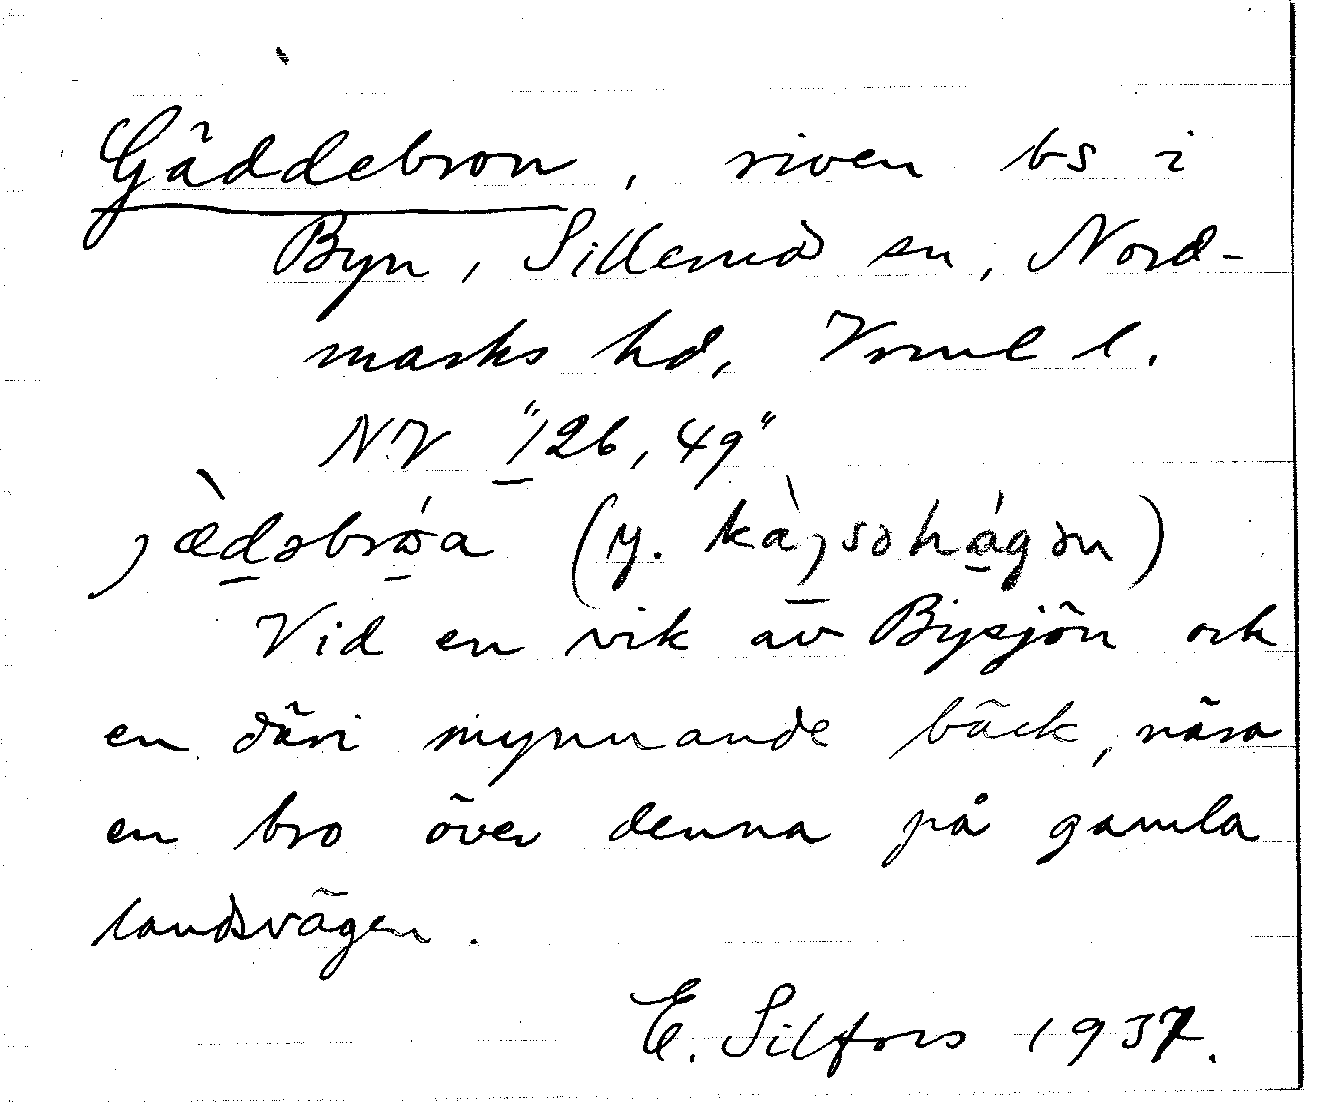 Gäddebron, riven bs i
Byn, Sillerud sn, Nord-
marks hd, Vrml l.
NV "126,49"
jæ̀dəbróa (y. kàjsəhágən)
Vid en vik av Bysjön och
en däri mynnande bäck, nära
en bro över denna på gamla
landsvägen.
E. Silfors 1937.